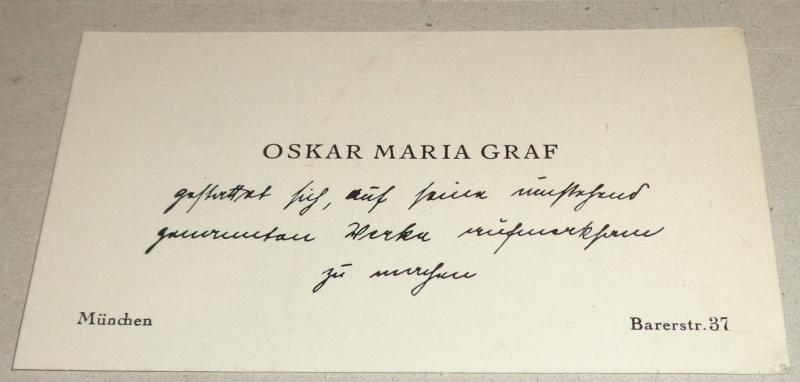 OSKAR MARIA GRAF
gestattet sich, auf seine umstehend
genannten Werke aufmerksam
zu machen
München
Barerstr. 37